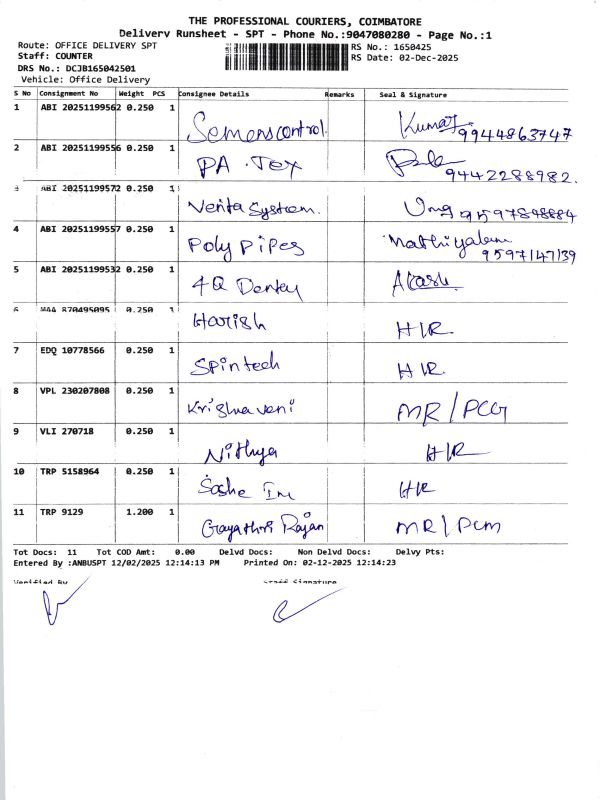 THE PROFESSIONAL COURIERS, COIMBATORE
Delivery Runsheet - SPT - Phone No.:9047080280 - Page No.:1
Route: OFFICE DELIVERY SPT
RS No.: 1650425
Staff: COUNTER
RS Date: 02-Dec-2025
DRS No.: DCJB165042501
Vehicle: Office Delivery
S No Consignment No Weight PCS Consignee Details Remarks Seal & Signature
1 ABI 20251199562 0.250 1 Semenscontrol Kumar 9944863747
2 ABI 20251199556 0.250 1 PA . Tex 9442288982.
3 ABI 20251199572 0.250 1 Verita System. Uma 9597848884
4 ABI 20251199557 0.250 1 Poly Pipes Mathiyalam 9597147139
5 ABI 20251199532 0.250 1 4Q Dentey Akash.
6 MAA 870495095 0.250 1 Harish HR
7 EDQ 10778566 0.250 1 Spintech HR.
8 VPL 230207808 0.250 1 Krishnaveni MR/PCG
9 VLI 270718 0.250 1 Nithya HR
10 TRP 5158964 0.250 1 HR
11 TRP 9129 1.200 1 Gayathri Rajan MR/PCM
Tot Docs: 11 Tot COD Amt: 0.00 Delvd Docs: Non Delvd Docs: Delvy Pts:
Entered By :ANBUSPT 12/02/2025 12:14:13 PM Printed On: 02-12-2025 12:14:23
Verified By Staff Signature